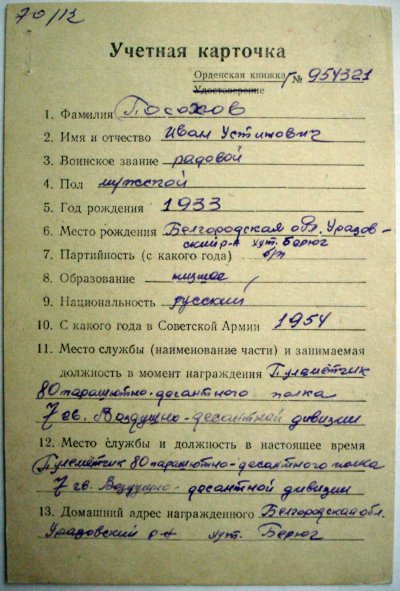 70/12
Учетная карточка
Орденская книжка г/№ 954321
Удостоверение
1. Фамилия Посохов
2. Имя и отчество Иван Устинович
3. Воинское звание рядовой
4. Пол мужской
5. Год рождения 1933
6. Место рождения Белгородская обл. Уразов-
ский р-н хут. Берюг
7. Партийность (с какого года) б/п
8. Образование низшее
9. Национальность русский
10. С какого года в Советской Армии 1954
11. Место службы (наименование части) и занимаемая
должность в момент награждения Пулемётчик
80 парашютно-десантного полка
7 гв. Воздушно-десантной дивизии
12. Место службы и должность в настоящее время
Пулемётчик 80 парашютно-десантного полка
7 гв. Воздушно-десантной дивизии
13. Домашний адрес награжденного Белгородская обл.
Уразовский р-н хут. Берюг